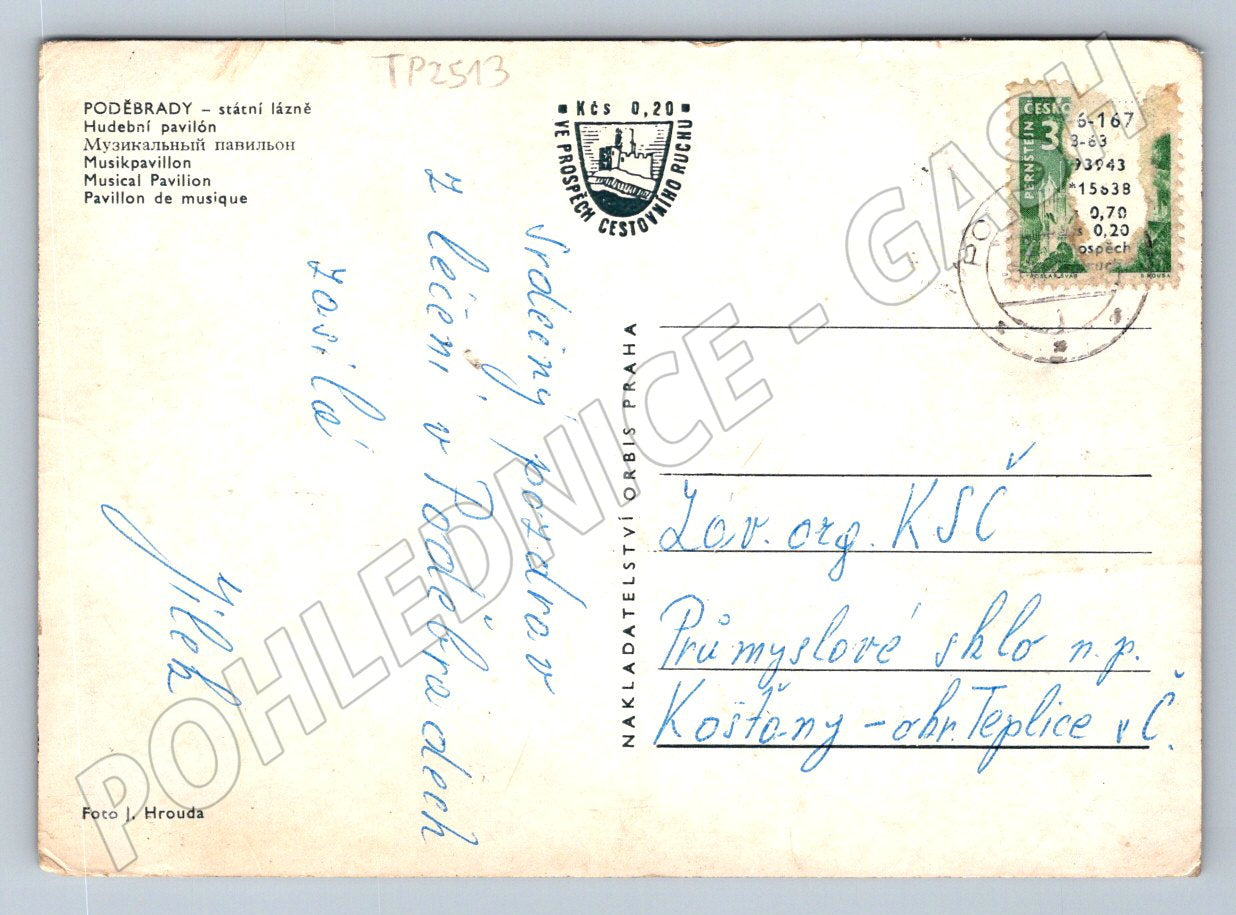 TP2513
PODĚBRADY – státní lázně
Hudební pavilón
Музикальный павильон
Musikpavillon
Musical Pavilion
Pavillon de musique
Kčs 0,20
VE PROSPĚCH CESTOVNÍHO RUCHU
ČESKO
PERNŠTEJN
3
6-167
3-63
93943
*15638
0,70
0,20
ospěch
Srdečný pozdrav
z léčení v Poděbradech
zasílá
Jílek
NAKLADATELSTVÍ ORBIS PRAHA
Záv. org. KSČ
Průmyslové sklo n.p.
Košťany – okr. Teplice v Č.
Foto J. Hrouda
POHLEDNICE - GASH